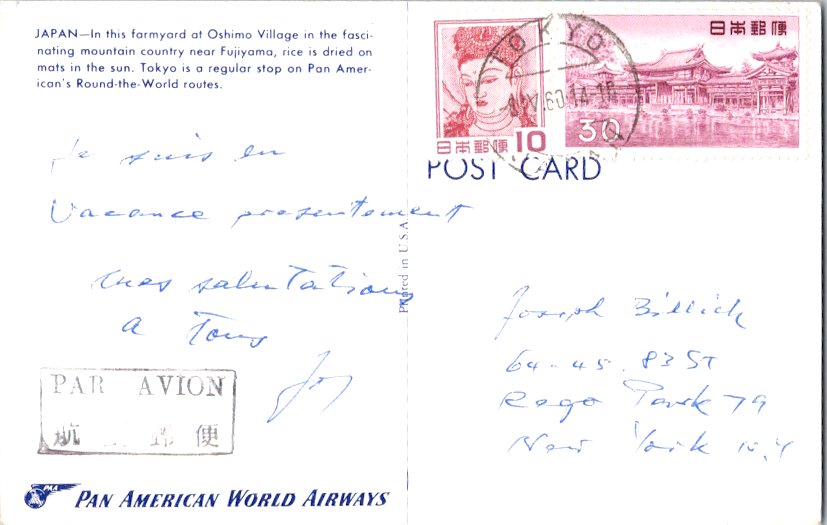 JAPAN—In this farmyard at Oshimo Village in the fasci-
nating mountain country near Fujiyama, rice is dried on
mats in the sun. Tokyo is a regular stop on Pan Amer-
ican's Round-the-World routes.
Je suis en
Vacance presentement
mes salutations
a Tous
Joy
PAR AVION
航 郵便
PAA
PAN AMERICAN WORLD AIRWAYS
Printed in U.S.A.
TOKYO
V.60.14-16
日本郵便 10
日本郵便
30
POST CARD
Joseph Billich
64-45. 83 ST
Rego Park 79
New York N.Y